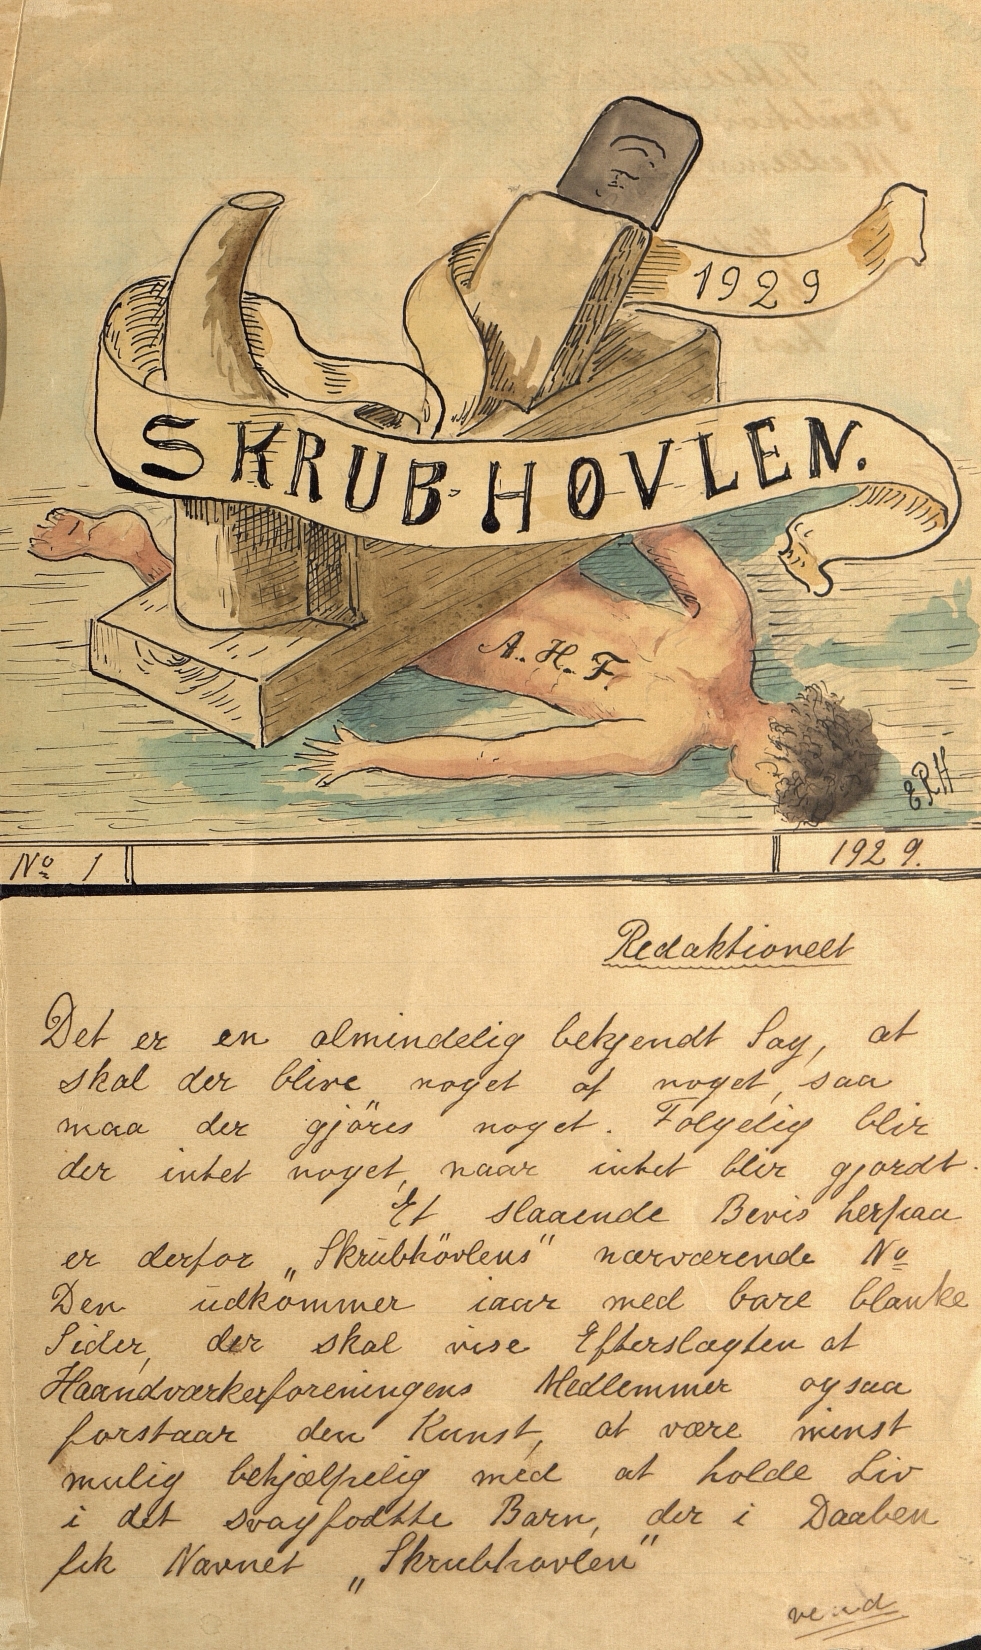 1929
SKRUBHØVLEN.
A. H. F.
EPH
No 1
1929.
Redaktionelt
Det er en almindelig bekjendt Sag, at
skal der blive noget af noget, saa
maa der gjöres noget. Folgelig blir
der intet noget, naar intet blir gjordt.
Et slaaende Bevis herpaa
er derfor „Skrubhövlens" nærværende No
Den udkommer iaar med bare blanke
Sider, der skal vise Efterslægten at
Haandværkerforeningens Medlemmer ogsaa
forstaar den Kunst, at være minst
mulig behjælpelig med at holde Liv
i det svagfodtte Barn, der i Daaben
fik Navnet „Skrubhovlen"
vend